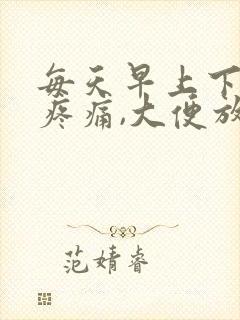 每天早上下
疼痛,大便放
范婧睿